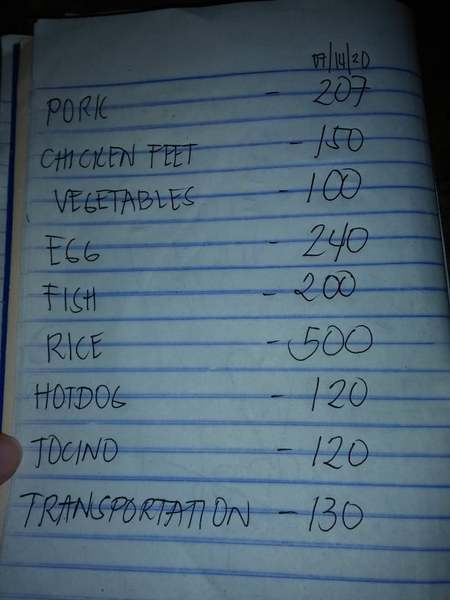 07/14/20
PORK - 207
CHICKEN FEET - 150
VEGETABLES - 100
EGG - 240
FISH - 200
RICE - 500
HOTDOG - 120
TOCINO - 120
TRANSPORTATION - 130